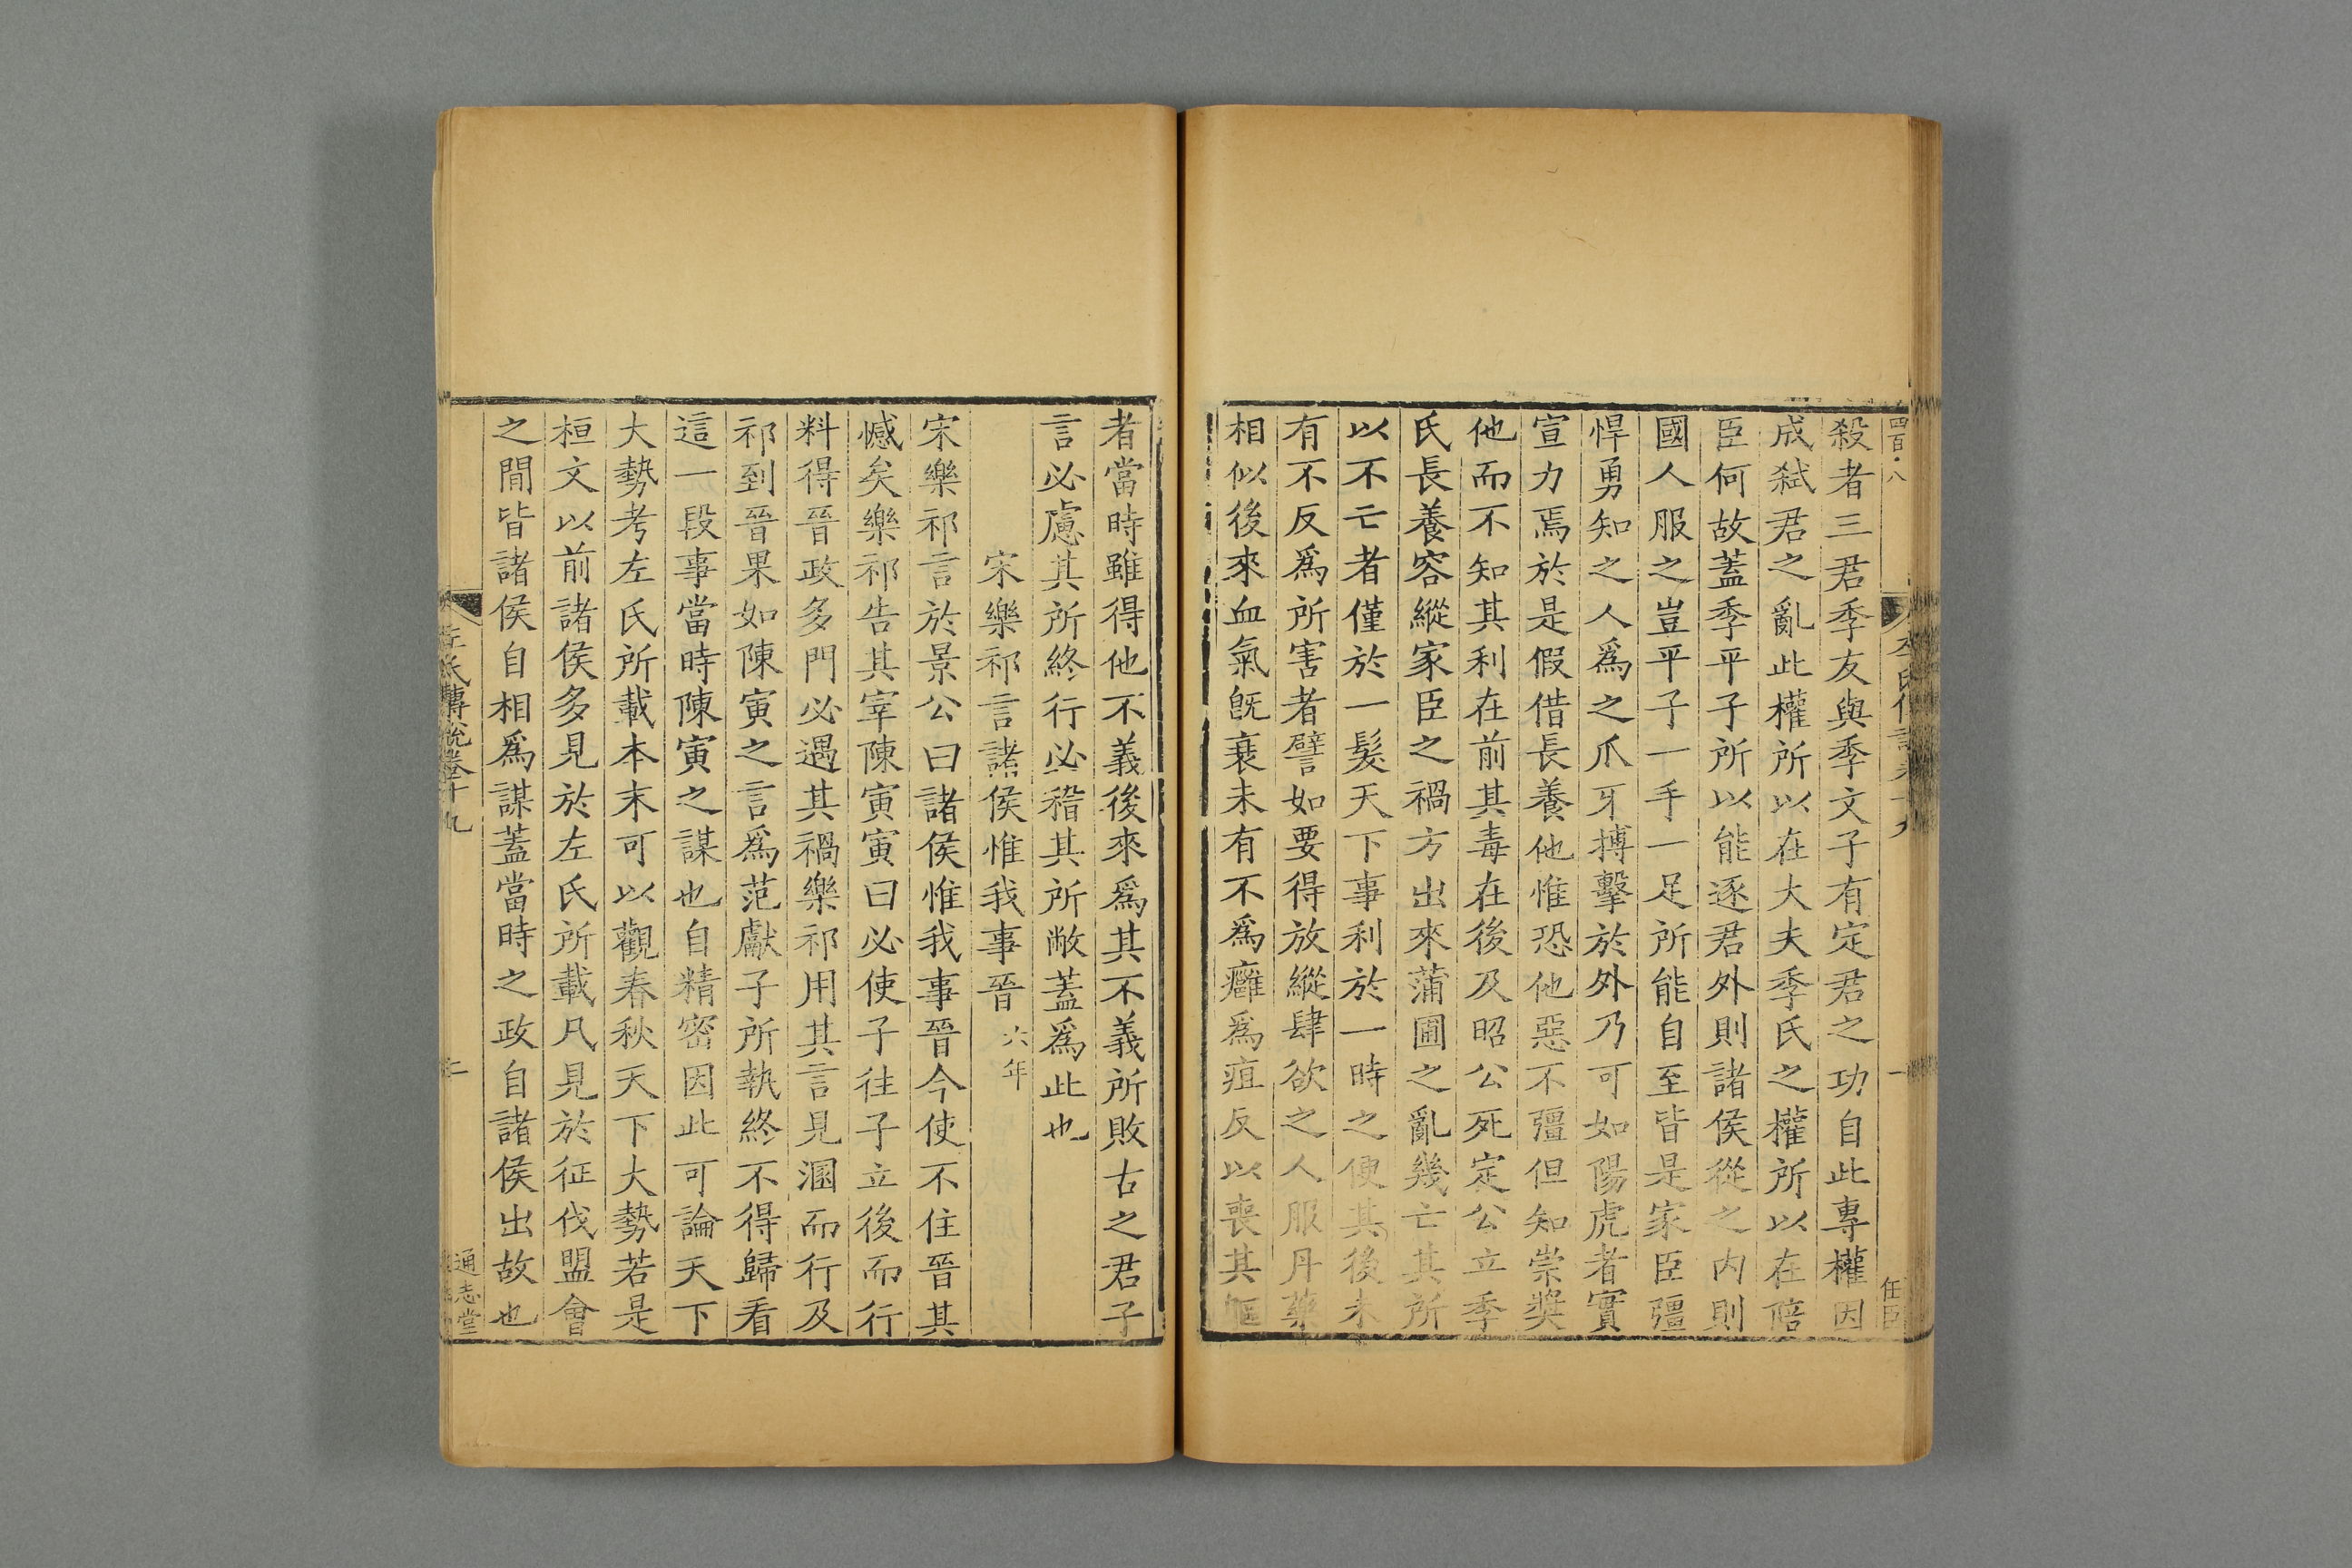 四百八
左氏傳說卷十九
一
任臣
殺者三君季友與季文子有定君之功自此專權因
成弒君之亂此權所以在大夫季氏之權所以在陪
臣何故蓋季平子所以能逐君外則諸侯從之內則
國人服之豈平子一手一足所能自至皆是家臣彊
悍勇知之人爲之爪牙搏擊於外乃可如陽虎者實
宣力焉於是假借長養他惟恐他惡不彊但知崇奬
他而不知其利在前其毒在後及昭公死定公立季
氏長養容縱家臣之禍方出來蒲圃之亂幾亡其所
以不亡者僅於一髮天下事利於一時之便其後未
有不反爲所害者譬如要得放縱肆欲之人服丹藥
相似後來血氣旣衰未有不爲癰爲疽反以喪其軀
者當時雖得他不義後來爲其不義所敗古之君子
言必慮其所終行必稽其所敝蓋爲此也
宋樂祁言諸侯惟我事晉 六年
宋樂祁言於景公曰諸侯惟我事晉今使不住晉其
憾矣樂祁告其宰陳寅寅曰必使子往子立後而行
料得晉政多門必遇其禍樂祁用其言見溷而行及
祁到晉果如陳寅之言爲范獻子所執終不得歸看
這一段事當時陳寅之謀也自精密因此可論天下
大勢考左氏所載本末可以觀春秋天下大勢若是
桓文以前諸侯多見於左氏所載凡見於征伐盟會
之間皆諸侯自相爲謀蓋當時之政自諸侯出故也
左氏傳說卷十九
二
通志堂